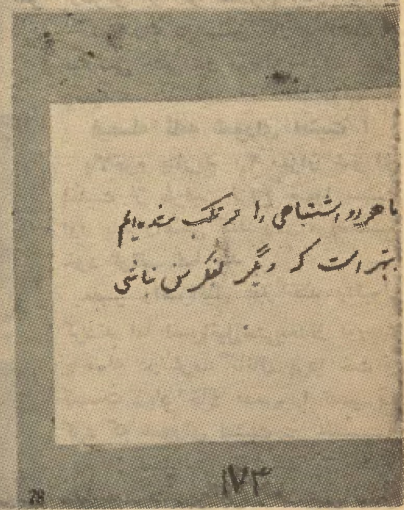 ما هردو اشتباهی را مرتکب شده‌ایم
بهتر است که دیگر بفکرش نباشی
۱۷۳
78